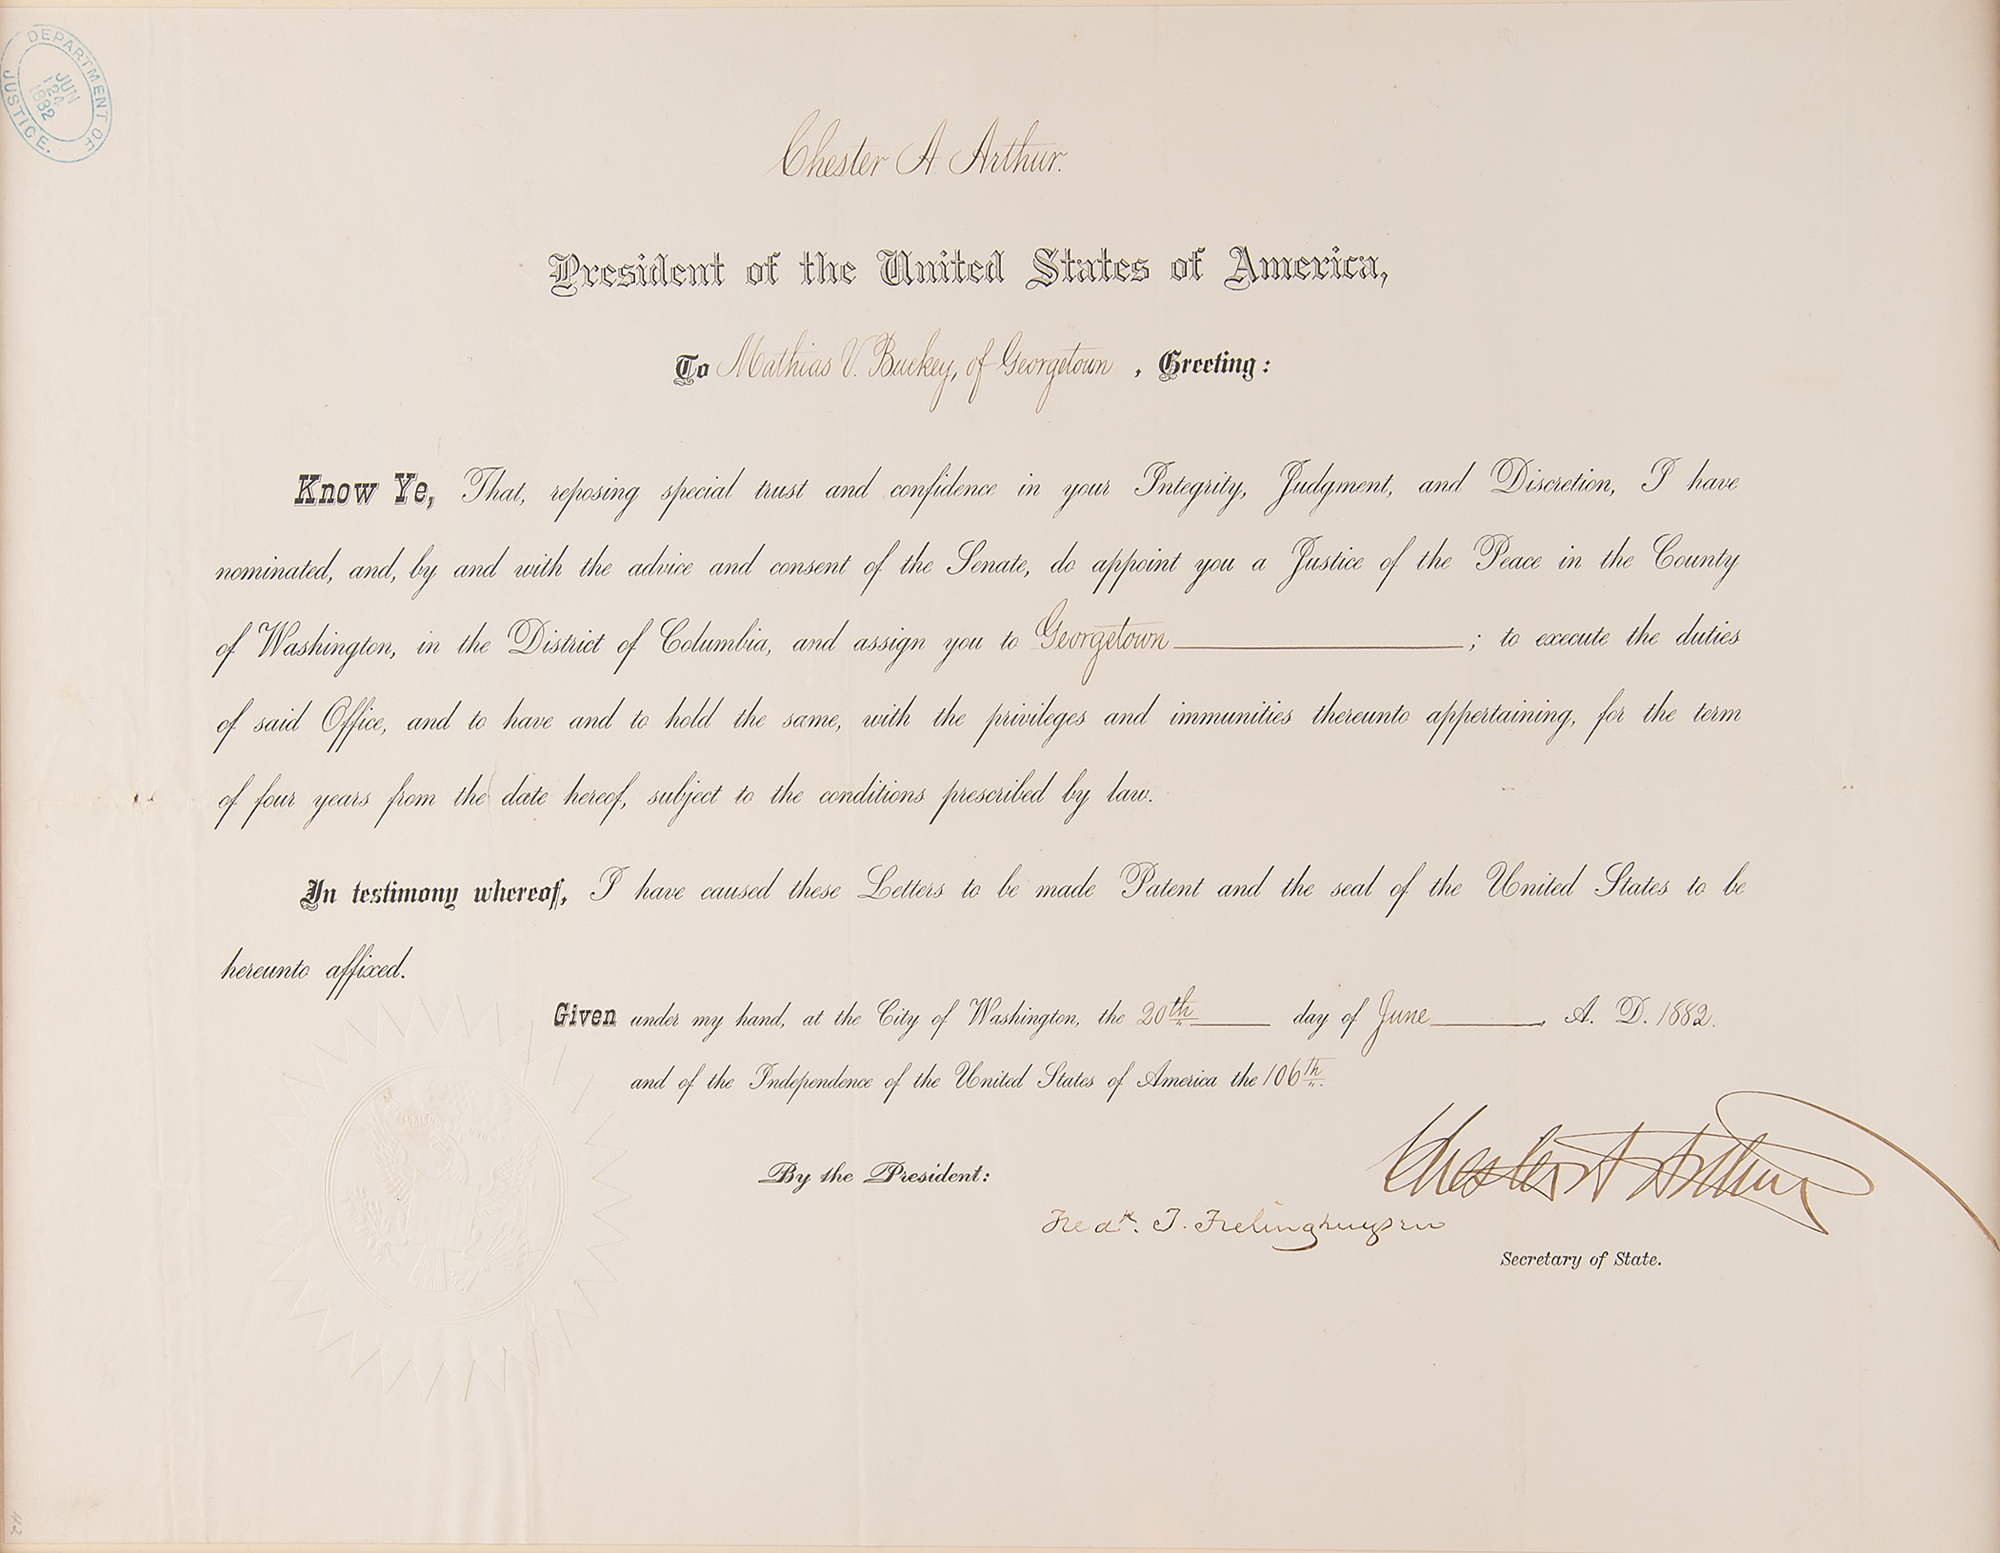 DEPARTMENT OF JUSTICE.
JUN
24
1882
Chester A. Arthur.
President of the United States of America,
To Mathias V. Buckey, of Georgetown, Greeting:
Know Ye, That, reposing special trust and confidence in your Integrity, Judgment, and Discretion, I have
nominated, and, by and with the advice and consent of the Senate, do appoint you a Justice of the Peace in the County
of Washington, in the District of Columbia, and assign you to Georgetown; to execute the duties
of said Office, and to have and to hold the same, with the privileges and immunities thereunto appertaining, for the term
of four years from the date hereof, subject to the conditions prescribed by law.
In testimony whereof, I have caused these Letters to be made Patent and the seal of the United States to be
hereunto affixed.
Given under my hand, at the City of Washington, the 20th day of June, A. D. 1882.
and of the Independence of the United States of America the 106th.
Chester A Arthur
By the President:
Fredk. T. Frelinghuysen
Secretary of State.
42